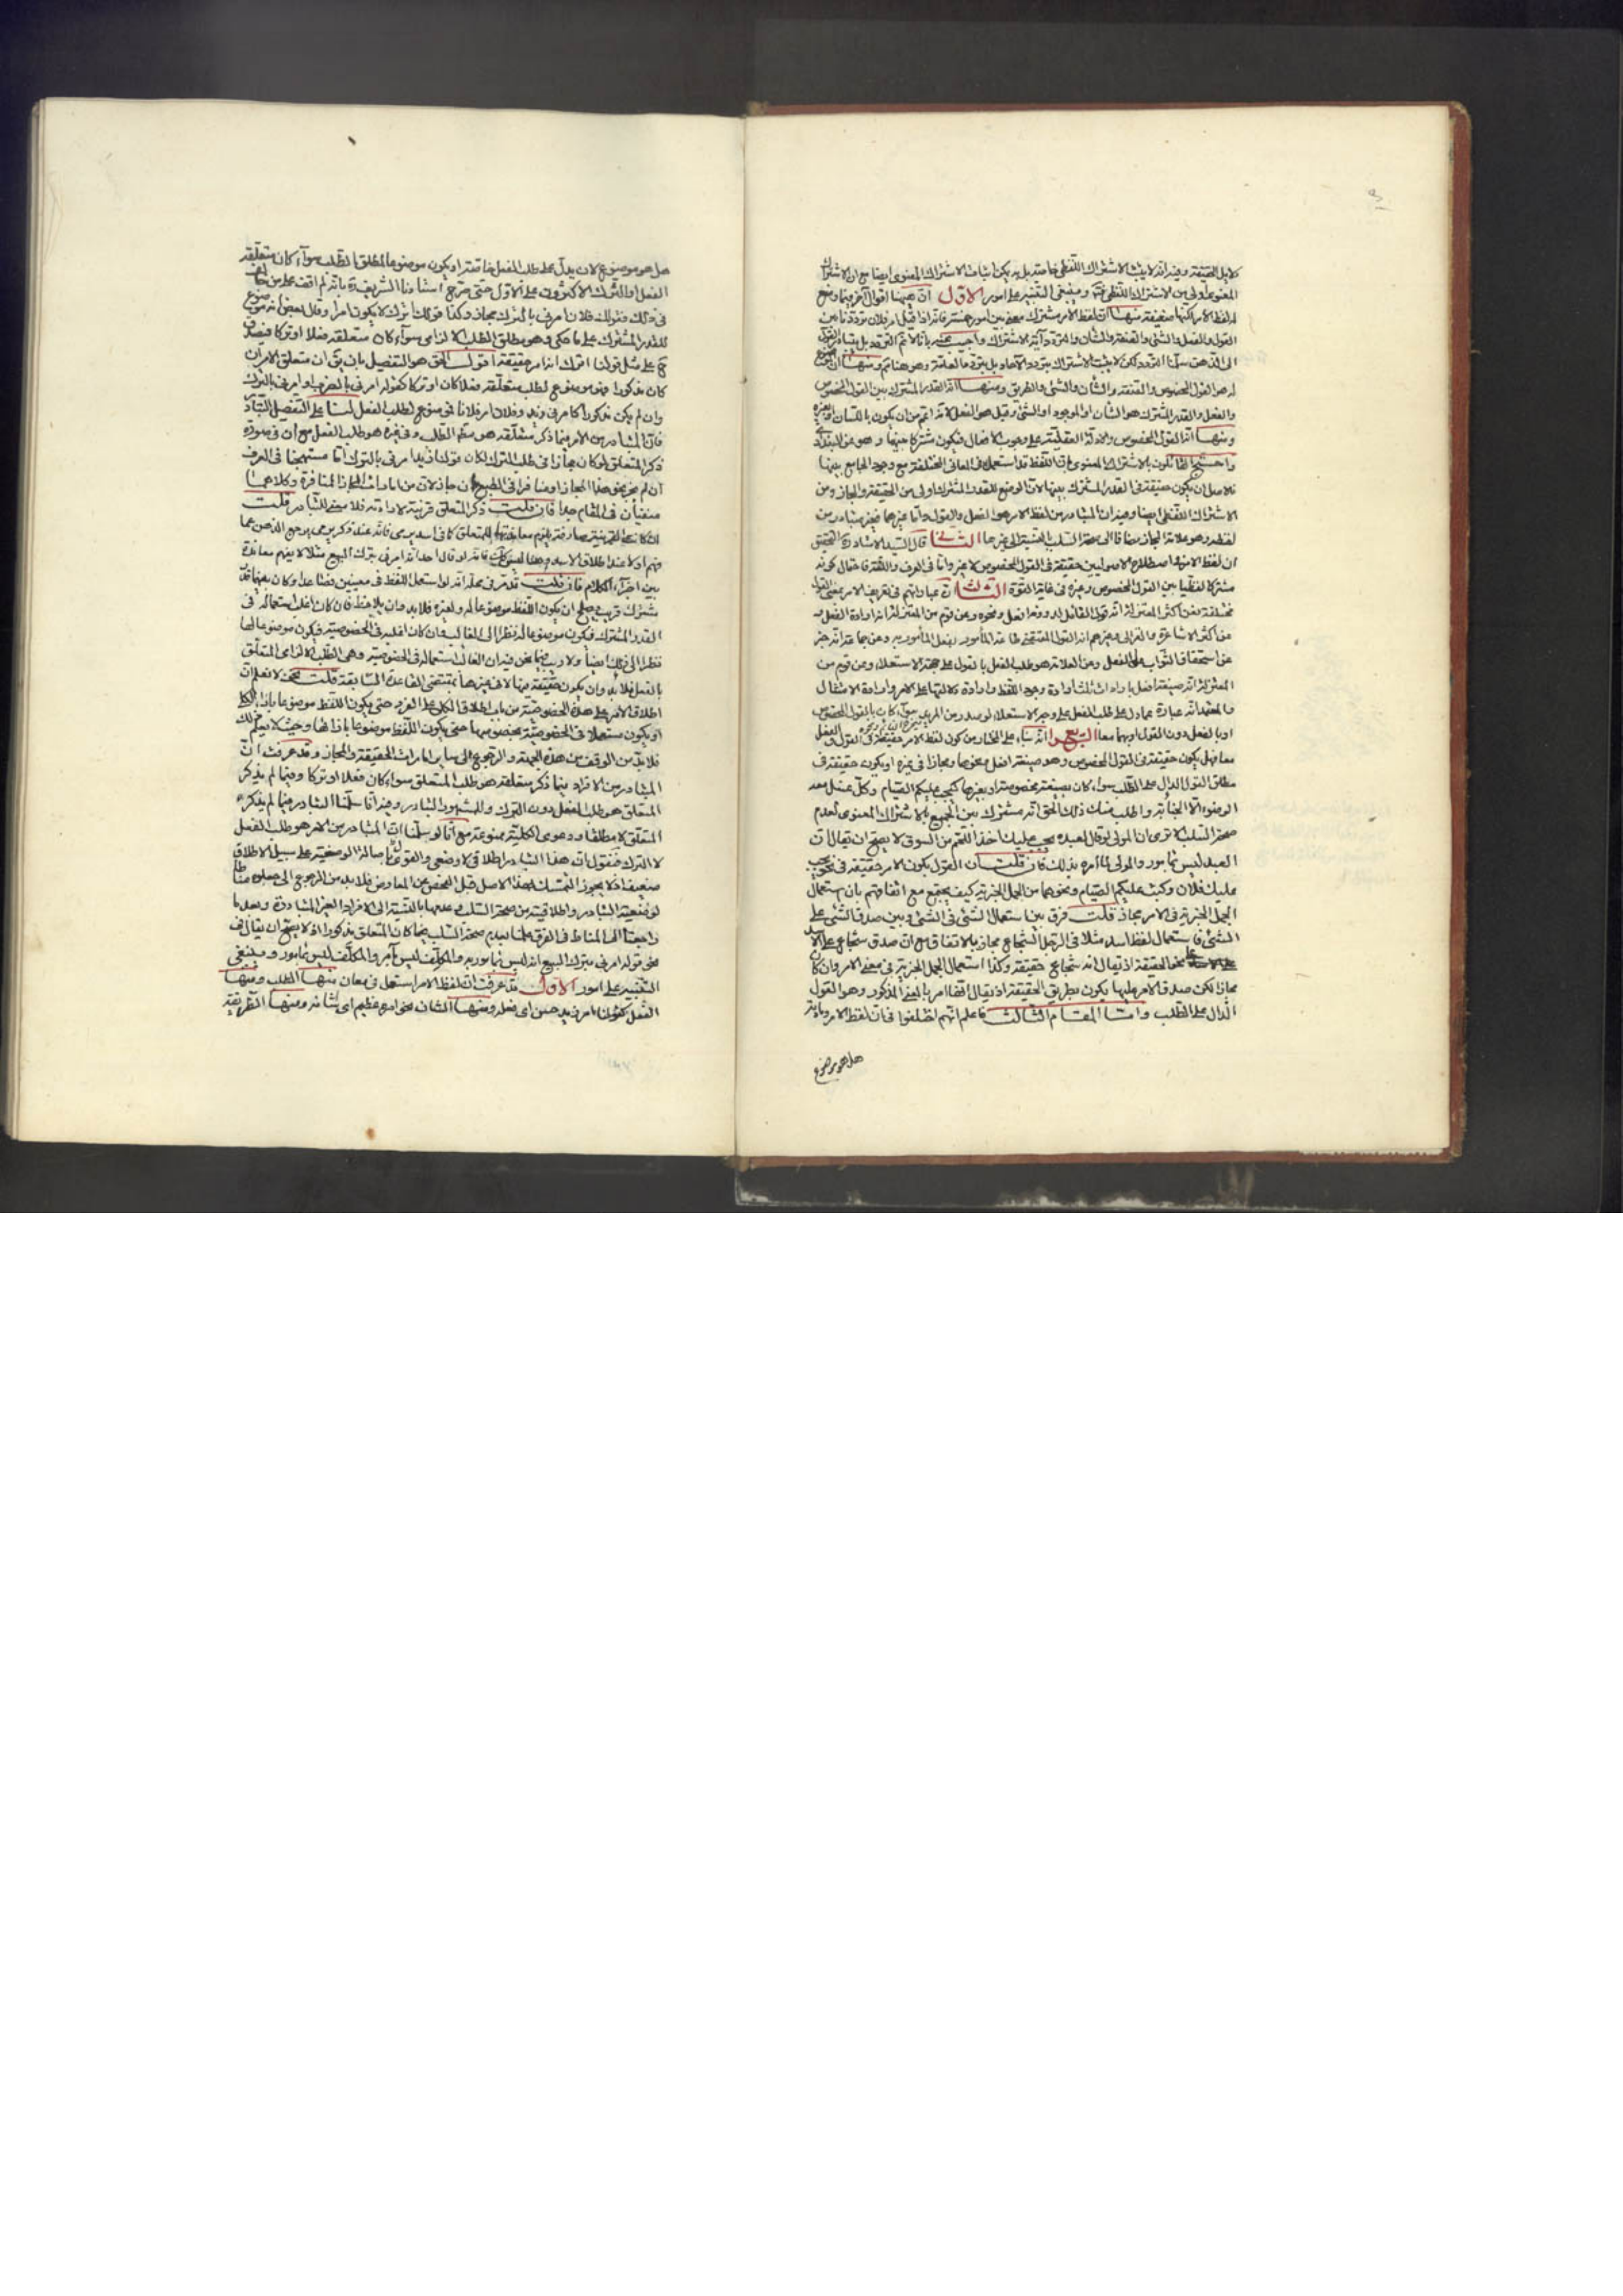 دلايل الحقيقة وفيه انه لا يثبت الاشتراك اللفظى خاصة بل يمكن اثبات الاشتراك المعنوى ايضا مع ان الاشتراك
المعنوى اولى من الاشتراك اللفظى وينبغى التنبيه على امور الاول ان ههنا اقوال اخر فيما وضع
له لفظ الامر لكنها ضعيفة منها ان لفظ الامر مشترك بين امور خمسة فانه اذا قيل امر فلان ترددنا بين
القول والفعل والشئ والصفة والشان والتردد آية الاشتراك واجيب بانا لا نم التردد بل يتبادر القول
الى الذهن سلمنا التردد لكن لا يثبت الاشتراك بتردد الآحاد بل بتردد اهل اللغة وهو هنا ثم ومنها انه موضوع
له هو القول المخصوص والصفة والشان والشئ والطريق ومنها انه القدر المشترك بين القول المخصوص
والفعل والقدر المشترك هو الشان او الموجود او الشئ وقيل هو الفعل لانه اعم من ان يكون باللسان او بغيره
ومنها انه القول المخصوص والادلة العقلية على وجوب الافعال فيكون مشتركا بينها وهو عن البغدادى
واحتج القائلون بالاشتراك المعنوى بان اللفظ قد استعمل فى المعانى المختلفة مع وجود الجامع بينها
فالاصل ان يكون حقيقة فى القدر المشترك بينها لان الوضع للقدر المشترك اولى من الحقيقة والمجاز ومن
الاشتراك اللفظى ايضا وفيه ان المتبادر من لفظ الامر هو الفعل والقول واما غيرهما فغير متبادر من
لفظه وهو علامة المجاز مضافا الى صحة السلب بالنسبة الى غيرهما الثانى قال السيد الاستاد ره التحقيق
ان لفظ الامر فى اصطلاح الاصوليين حقيقة فى القول المخصوص لا غير واما فى العرف واللغة فاحتمال كونه
مشتركا لفظيا بين القول المخصوص وغيره فى غاية القوة الثالث ان عباراتهم فى تعريف الامر بمعنى القول
مختلفة فعن اكثر المعتزلة انه قول القائل لمن دونه افعل ونحوه وعن قوم من المعتزلة انه ارادة الفعل و
عن اكثر الاشاعرة والغزالى وغيرهم انه القول المقتضى طاعة المأمور بفعل المأمور به وعن جماعة انه خبر
عن استحقاق الثواب على الفعل وعن العلامة هو طلب الفعل بالقول على جهة الاستعلاء وعن قوم من
المعتزلة انه صيغة افعل بارادات ثلث ارادة وجود اللفظ وارادة دلالتها على الامر وارادة الامتثال
والمعتمد انه عبارة عما دل على طلب الفعل على وجه الاستعلاء لو صدر من المريد سواء كان بالقول المخصوص
او بالفعل دون القول او بهما معا الرابع انه بناء على المختار من كون لفظ الامر حقيقة فى القول والفعل
معا فهل يكون حقيقة فى القول المخصوص وهو صيغة افعل مخصوصا ومجازا فى غيره او يكون حقيقة فى
مطلق القول الدال على الطلب سواء كان بصيغة مخصوصة او بغيرها كيجب عليكم الصيام وكل غسل معه
الوضوء الا الجنابة واطلب منك ذلك الحق انه مشترك بين الجميع بالاشتراك المعنوى لعدم
صحة السلب الا ترى ان المولى لو قال لعبده يجب عليك اخذ اللحم من السوق لا يصح ان يقال ان
العبد ليس بمأمور والمولى ما امره بذلك فان قلت ان القول بكون الامر حقيقة فى نحو يجب
عليك فلان وكتب عليكم الصيام ونحوهما من الجمل الخبرية كيف يجتمع مع اتفاقهم بان استعمال
الجمل الخبرية فى الامر مجاز قلت فرق بين استعمال الشئ فى الشئ وبين صدق الشئ على
الشئ فاستعمال لفظ اسد مثلا فى الرجل الشجاع مجاز بالاتفاق مع ان صدق شجاع على الاسد
على نحو الحقيقة اذ يقال انه شجاع حقيقة وكذا استعمال الجمل الخبرية فى معنى الامر وان كان
مجازا لكن صدق الامر عليها يكون بطريق الحقيقة اذ يقال انها امر بالمعنى المذكور وهو القول
الدال على الطلب واما المقام الثالث فاعلم انهم اختلفوا فى ان لفظ الامر ومادته
هل هو موضوع
هل هو موضوع لان يدل على طلب الفعل خاصة او يكون موضوعا لمطلق الطلب سواء كان متعلقه
الفعل او الترك الاكثرون على الاول حتى صرح استادنا الشريف ره بانه لم اقف على من خالف
فى ذلك فقولك فلان امرنى بالترك مجاز وكذا قولك اترك لا يكون امرا وقال بعض انه موضوع
للقدر المشترك على ما حكى وهو مطلق الطلب الالزامى سواء كان متعلقه فعلا او تركا فيصدق
ح على مثل قولنا اترك انه امر حقيقة اقول الحق هو التفصيل بان يق ان متعلق الامر ان
كان مذكورا فهو موضوع لطلب متعلقه فعلا كان او تركا كقوله امرنى بالضرب او امرنى بالترك
وان لم يكن مذكورا كامرنى زيد وفلان امر فلانا فهو موضوع لطلب الفعل لنا على التفصيل التبادر
فان المتبادر من الامر فيما ذكر متعلقه هو مطلق الطلب وفى غيره هو طلب الفعل مع ان فى صورة
ذكر المتعلق لو كان مجازا فى طلب الترك لكان قولك زيد امرنى بالترك اما مستهجنا فى العرف
ان لم يجز نحو هذا المجاز او منافرا فى الطبع ان جاز لان من امارات المجاز المنافرة وكلاهما
منفيان فى المقام جدا فان قلت ذكر المتعلق قرينة لارادته فلا معنى للتبادر قلت
فهم اولا عند اطلاق الاسد وهنا ليس كك فانه لو قال احد انه امرنى بترك البيع مثلا لا يفهم معاندة
بين اجزاء الكلام فان قلت قد مر فى محله انه لو استعمل اللفظ فى معنيين فصاعدا وكان بينهما قدر
مشترك قريب يصلح ان يكون اللفظ موضوعا له ولغيره فلا بد وان يلاحظ فان كان اغلب استعماله فى
القدر المشترك فيكون موضوعا له نظرا الى الغالب وان كان اغلبه فى الخصوصية فيكون موضوعا لها
نظرا الى ذلك ايضا ولا ريب فيما نحن فيه ان الغالب استعماله فى الخصوصية وهى الطلب الالزامى المتعلق
بالفعل فلا بد وان يكون حقيقة فيها لا فى غيرها بمقتضى القاعدة السابقة قلت نحن لا نعلم ان
اطلاق الامر على هذه الخصوصية من باب اطلاق الكلى على الفرد حتى يكون اللفظ موضوعا بازاء الكلى
او يكون مستعملا فى الخصوصية بخصوصها حتى يكون اللفظ موضوعا بازائها وحيث لا يعلم ذلك
فلا بد من الوقف من هذه الجهة والرجوع الى ساير امارات الحقيقة والمجاز وقد عرفت ان
المتبادر من الافراد فيما ذكر متعلقه هو طلب المتعلق سواء كان فعلا او تركا وفيما لم يذكر
المتعلق هو طلب الفعل دون الترك وللمشهور التبادر وفيه انا سلمنا التبادر فيما لم يذكر
المتعلق لا مطلقا ودعوى الكلية ممنوعة مع انا لو سلمنا ان المتبادر من الامر هو طلب الفعل
لا الترك فنقول ان هذا التبادر اطلاقى لا وضعى والقول باصالة الوضعية على سبيل الاطلاق
ضعيف اذ لا يجوز التمسك بهذا الاصل قبل الفحص عن المعارض فلا بد من الرجوع الى جعلوه مناطا
لوضعية التبادر واطلاقيته من صحة السلب وعدمها بالنسبة الى الافراد الغير المتبادرة وبعد ما
راجعنا الى المناط فى الفرق علمنا بعدم صحة السلب فيما كان المتعلق مذكورا اذ لا يصح ان يقال فى
نحو قوله امرنى بترك البيع انه ليس بمأمور به والمكلف ليس بآمر والمكلف ليس بمأمور وينبغى
التنبيه على امور الاول قد عرفت ان لفظ الامر استعمل فى معان منها الطلب ومنها
الفعل كقولنا امر زيد حسن اى فعله ومنها الشان نحو امره عظيم اى شانه ومنها الطريقة